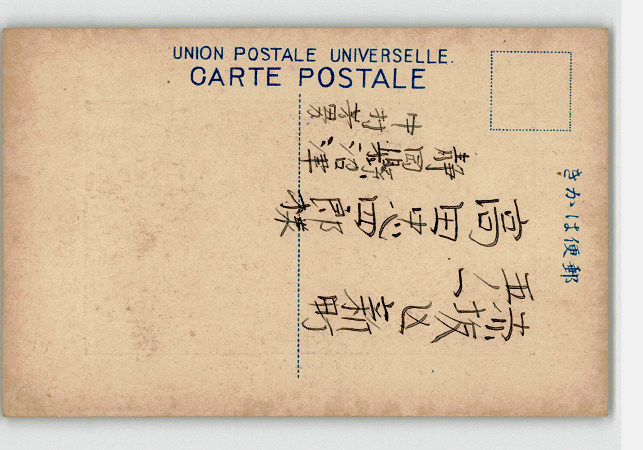 UNION POSTALE UNIVERSELLE.
CARTE POSTALE
郵便はかき
赤坂区新町
五八
高田忠四郎様
静岡縣沼津
中村